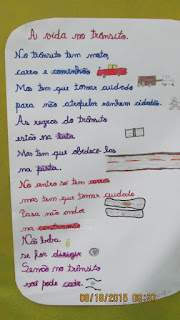 A vida no trânsito.
No trânsito tem moto,
carro e caminhão
Mas tem que tomar cuidado
para não atropelar nenhum cidadão.
As regras do trânsito
estão na
Mas tem que obedece-las
na pista.
No entro se tem carro
mas tem que tomar cuidado
Para não andar
na contramão
Não beba,
se for dirigir
Senão no trânsito
você pode cair.
03/18/2015